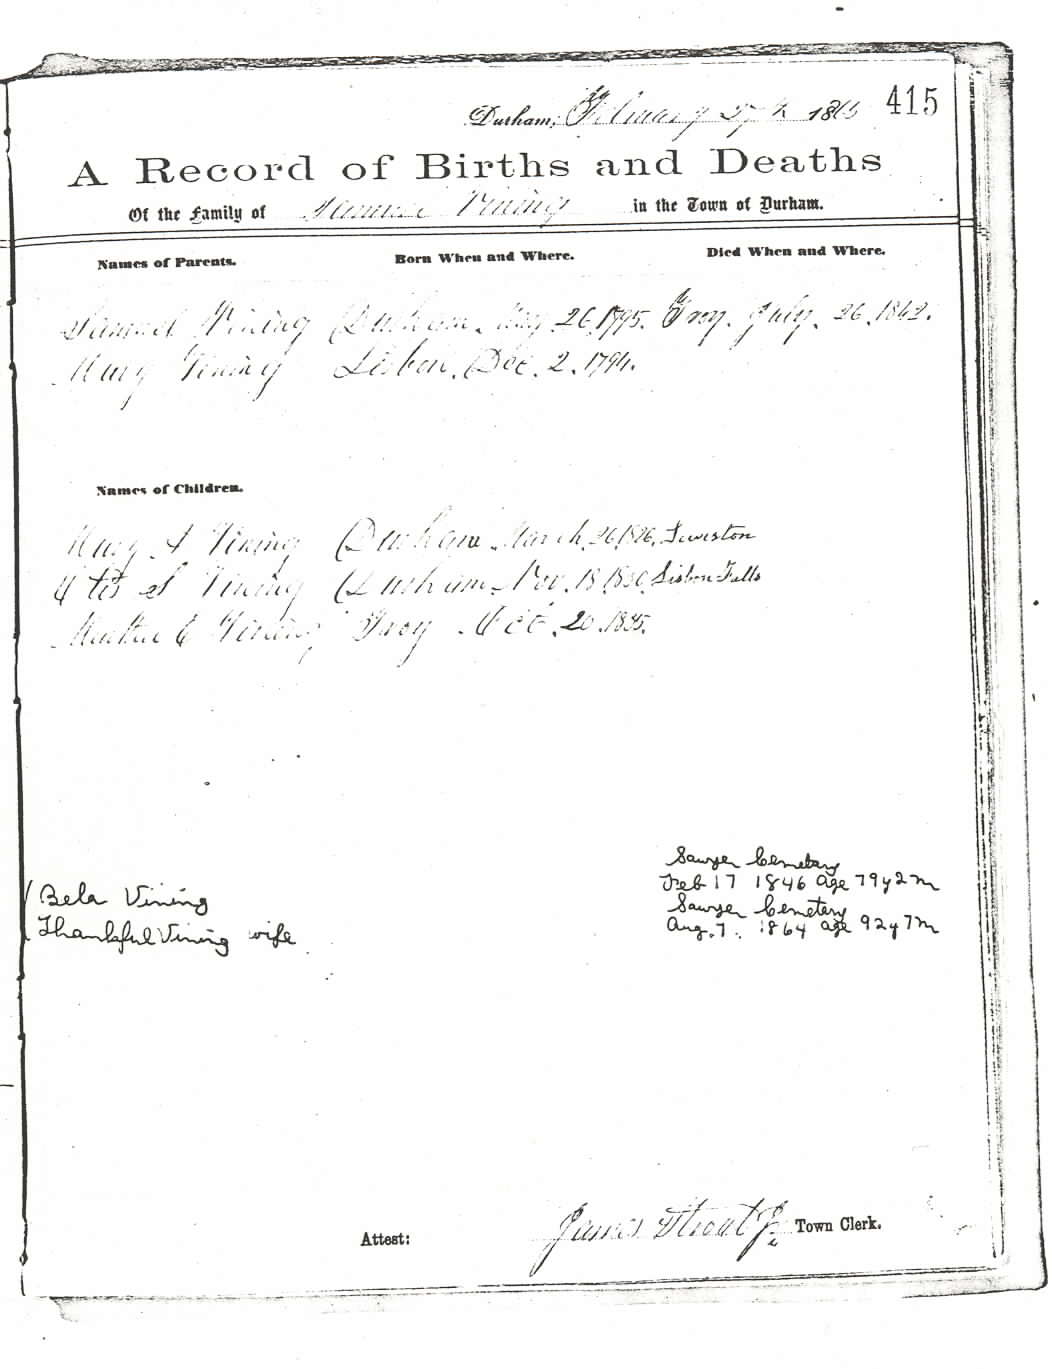 415
Durham, February 27th 1865
A Record of Births and Deaths
Of the Family of Samuel Vining in the Town of Durham.
Names of Parents. Born When and Where. Died When and Where.
Samuel Vining Durham. May. 26, 1795. Troy. July. 26. 1862.
Mary Vining Lisbon. Dec. 2. 1794.
Names of Children.
Mary A Vining Durham. March. 26, 1826. Lewiston
S Vining Durham. Nov. 18, 1830. Lisbon Falls
C Vining Troy Oct. 20. 1835.
Sawyer Cemetery
Bela Vining Feb 17 1846 age 79y2m
Sawyer Cemetery
Thankful Vining wife Aug. 7. 1864 age 92y7m
Attest: James Strout Jr Town Clerk.